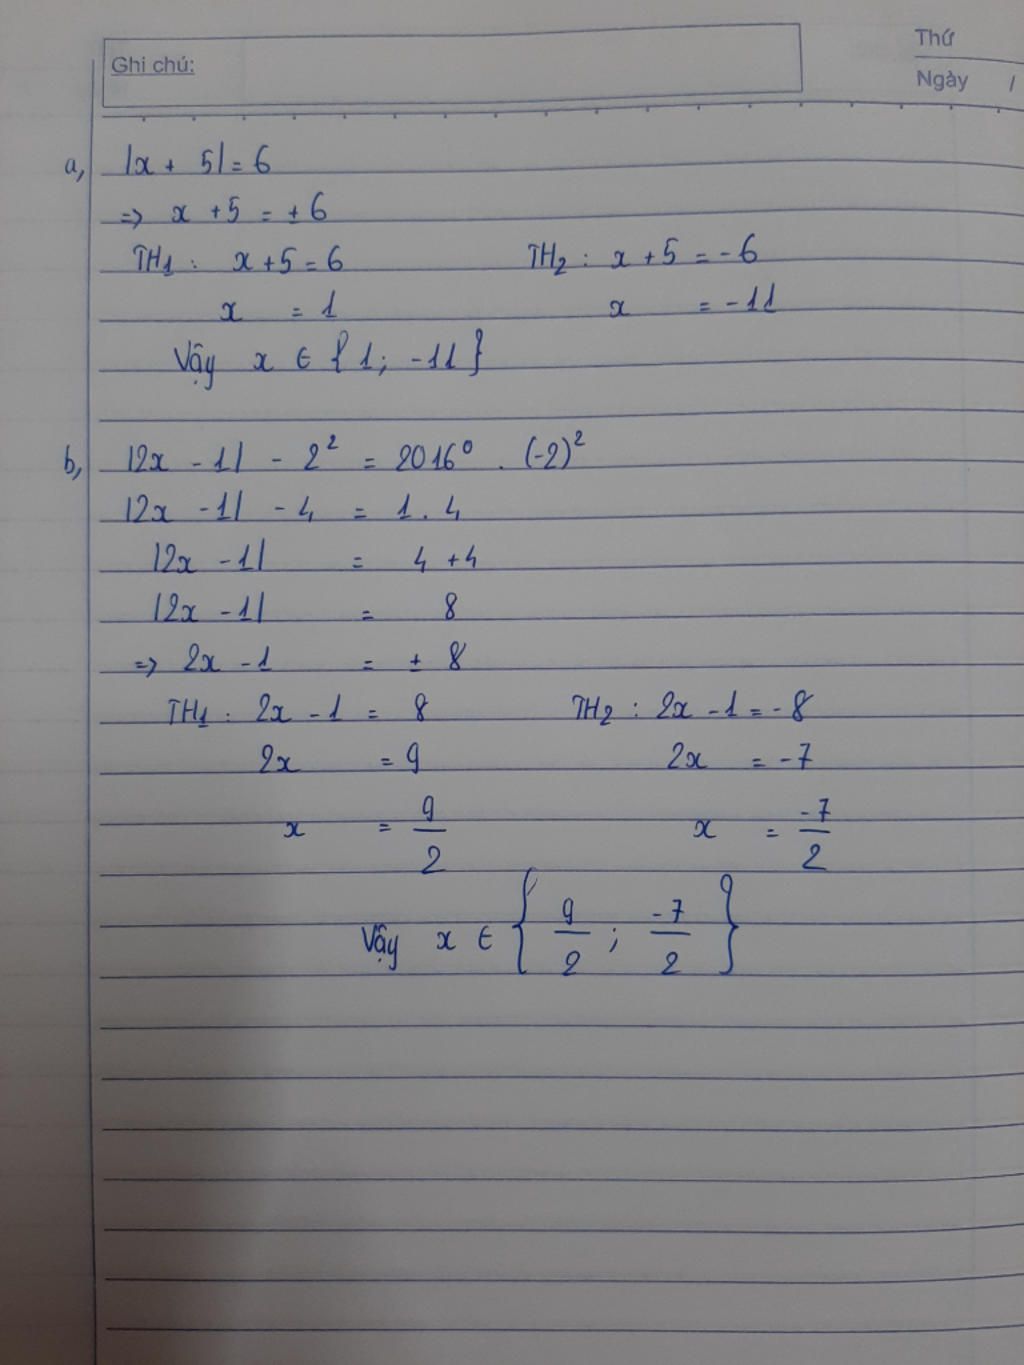 Ghi chú:
Thứ
Ngày /
a, |x + 5| = 6
=> x + 5 = ± 6
TH1 : x + 5 = 6 TH2 : x + 5 = - 6
x = 1 x = - 11
Vậy x ∈ { 1; -11 }
b, |2x - 1| - 2² = 2016⁰ . (-2)²
|2x - 1| - 4 = 1 . 4
|2x - 1| = 4 + 4
|2x - 1| = 8
=> 2x - 1 = ± 8
TH1 : 2x - 1 = 8 TH2 : 2x - 1 = - 8
2x = 9 2x = - 7
x = 9/2 x = -7/2
Vậy x ∈ { 9/2 ; -7/2 }